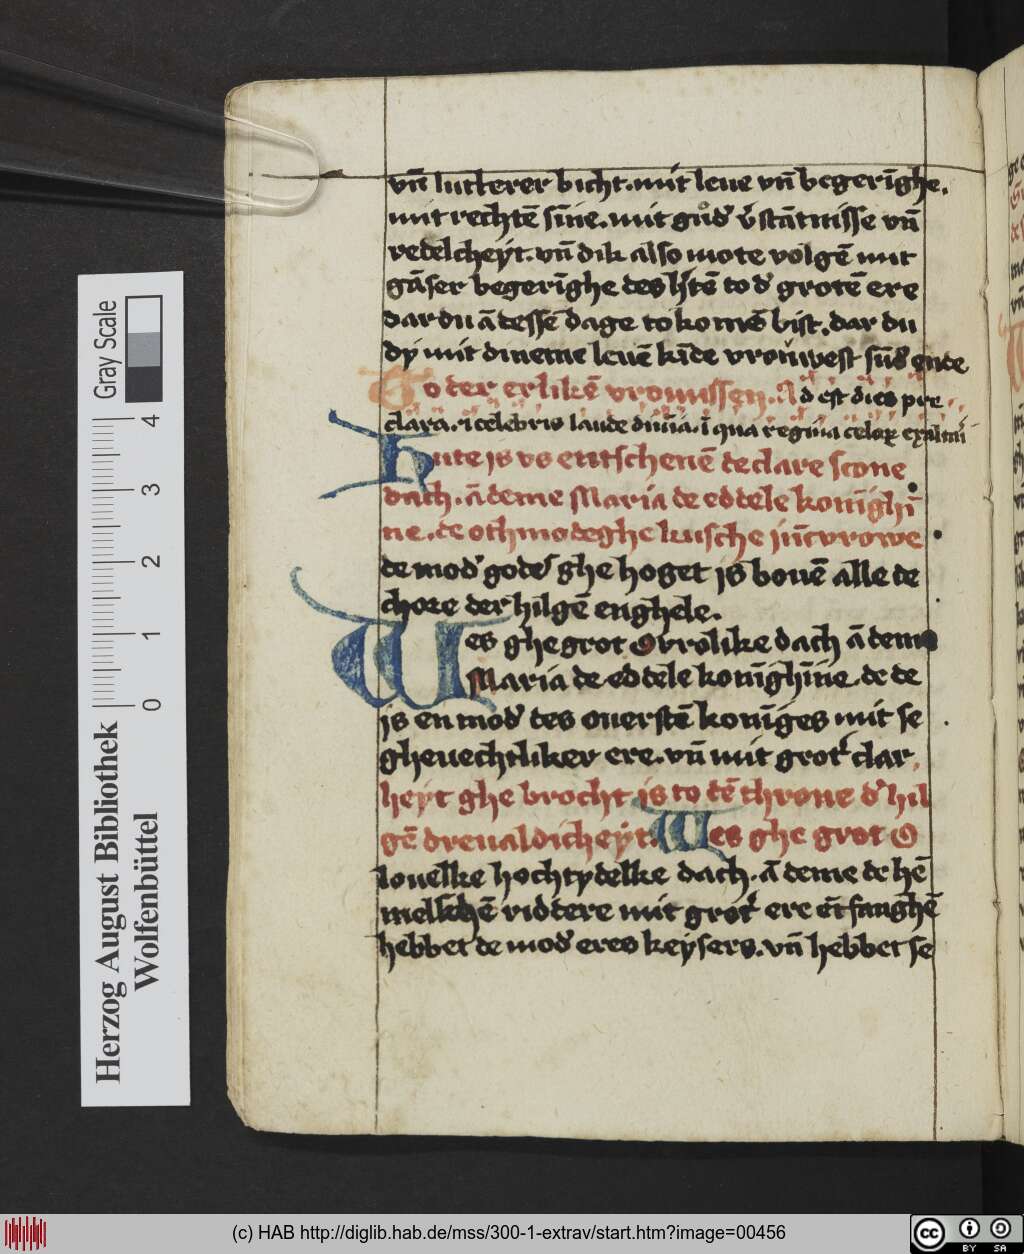 vn̄ lutterer bicht. mit leue vn̄ begerīghe.
mit rechtē sīne. mit gud' v'stātnisse vn̄
redelcheyt. vn̄ dik also mote volgē mit
gāser begerīghe des l'stē to d' grotē ere
dar du ā dessē dage to komē bist. dar du
dy mit dineme leuē kīde vrouwest sūd' ende
To der erlikē vromissen. Ad est dies pre
clara. ī celebris laude diuīa. ī qua regina celoꝝ exaltat'
Hute is vs entschenē de clare scone
dach. ā deme Maria de eddele konīghī
ne. de othmodeghe kusche jūcvrowe
de mod' gode' ghe hoget is bouē alle de
chore der hilgē enghele.
Wes ghe grot O vrolike dach ā deme
Maria de eddele konīghīne. de de
is en mod' des ouerstē konīges mit se
gheuechtliker ere. vn̄ mit grot' clar
heyt ghe brocht is to dē throne d' hil
gē dreualdicheyt. Wes ghe grot O
louelke hochtydelke dach. ā deme de hē
melschē riddere mit grot' ere ētfanghē
hebbet de mod' eres keysers. vn̄ hebbet se
Gray Scale
4
3
2
1
0
Herzog August Bibliothek
Wolfenbüttel
(c) HAB http://diglib.hab.de/mss/300-1-extrav/start.htm?image=00456
cc
BY SA